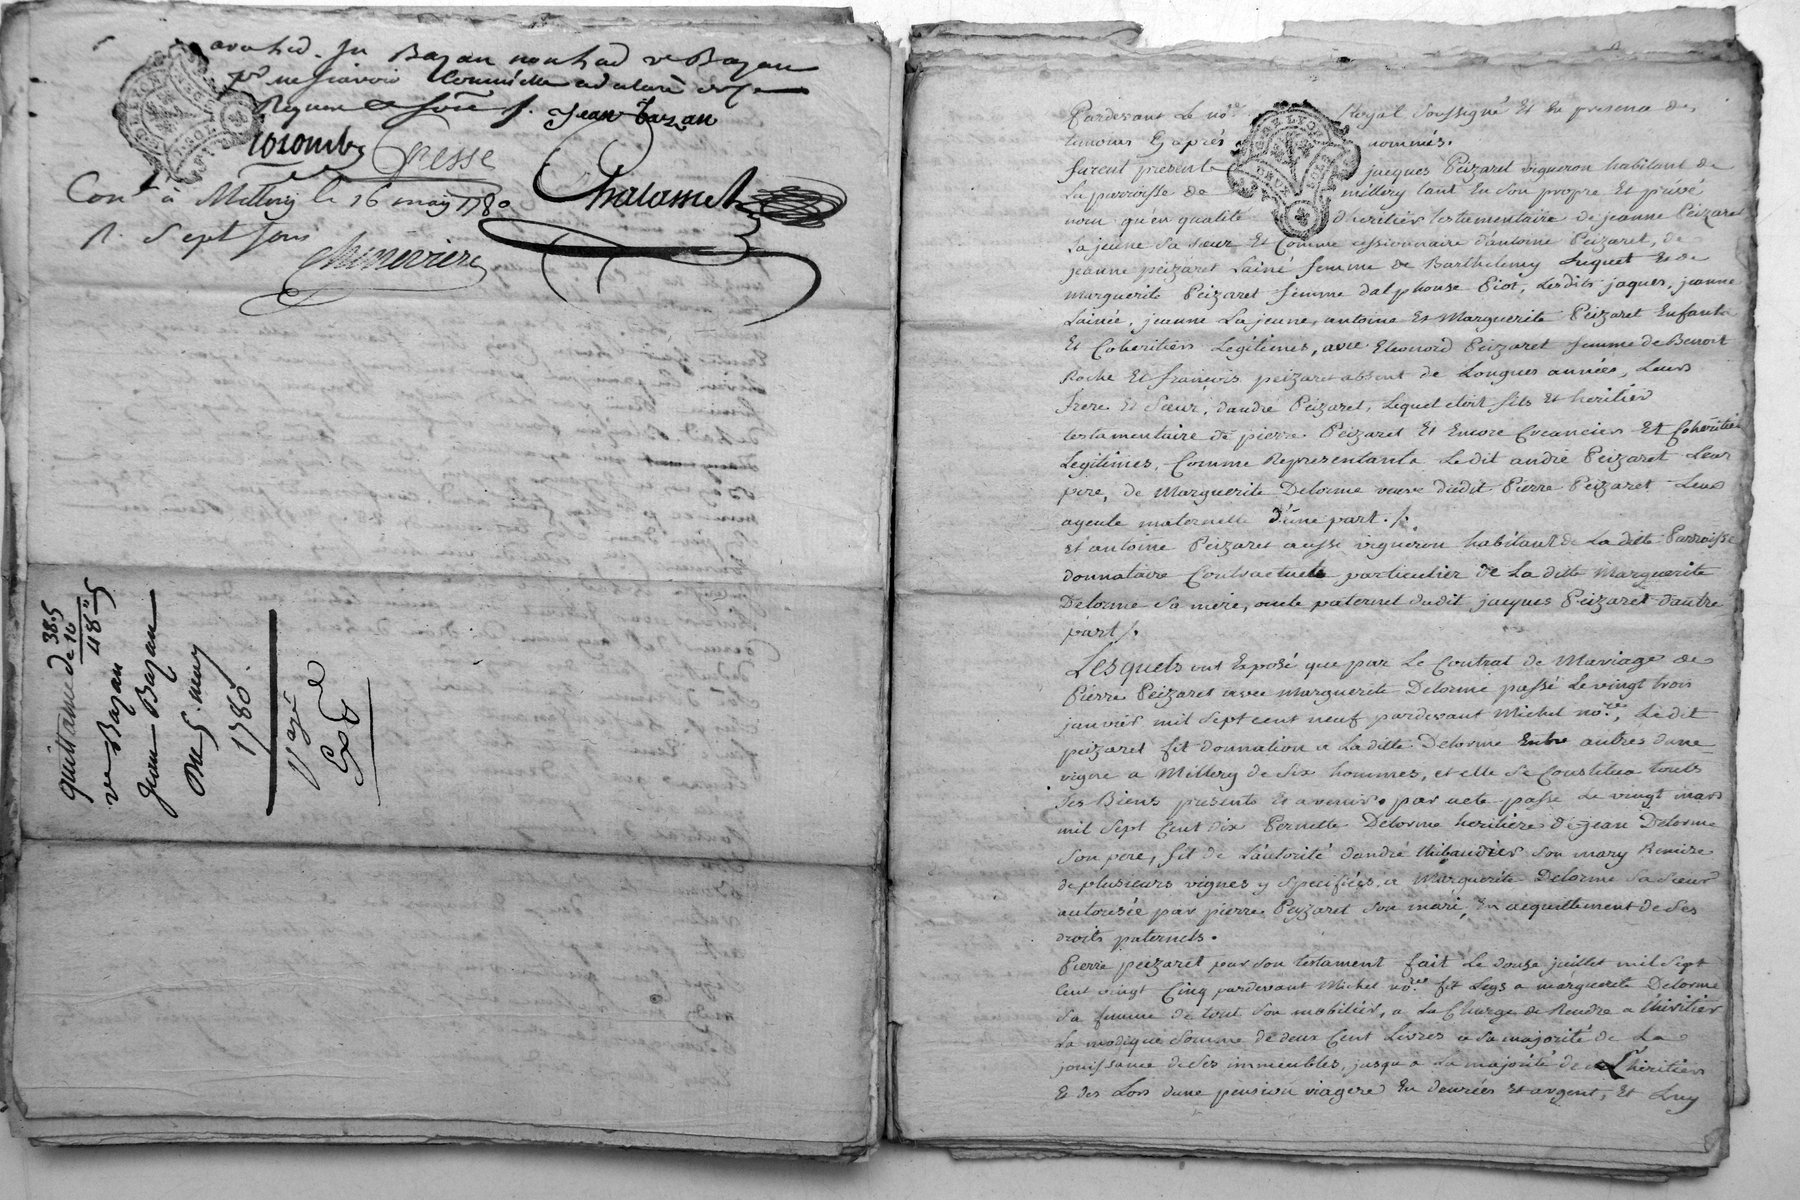 Jean Bazan
Chalamet
Con.t à Millery le 16 may 1780
R. Sept sous
quittance de 38.5
10
48"5
ve Bazan
Jean Bazan
Du 5. may
1780.
GENE LYON
DEUX SOLS
Pardevant Le no.re Royal Soussigné Et En presence des
temoins Cy après nommés.
furent présents jacques Peizaret vigneron habitant de
La parroisse de millery tant En son propre Et privé
nom qu'en qualité d'heritier testamentaire de jeanne Peizaret
La jeune Sa sœur Et Comme cessionnaire d'antoine Peizaret, de
jeanne peizaret Lainé femme de Barthelemy Luquet Et de
Marguerite Peizaret femme dalphonse Piot, Lesdits jaques, jeanne
Lainée, jeanne La jeune, antoine Et Marguerite Peizaret Enfants
Et Coheritiers Legitimes, avec Eleonord Peizaret femme de Benoit
Roche Et francois peizaret absent de Longues années, Leurs
frere Et Sœur, dandré Peizaret, Lequel etoit fils Et heritier
testamentaire de pierre Peizaret Et Encore Creanciers Et Coheritiers
Legitimes, Comme Representants Ledit andré Peizaret Leur
pere, de Marguerite Delorme veuve dudit Pierre Peizaret Leur
ayeule maternelle d'une part./.
Et antoine Peizaret aussi vigneron habitant de La ditte Parroisse
donnataire Contractuel particulier de La ditte Marguerite
Delorme Sa mere, oncle paternel dudit jacques Peizaret d'autre
part/.
Lesquels ont Exposé que par Le Contrat de Mariage de
Pierre Peizaret avec Marguerite Delorme passé Le vingt trois
janvier mil Sept cent neuf pardevant Michel no.re, Ledit
peizaret fit donnation a Laditte Delorme Entre autres dune
vigne a Millery de Six hommes, et elle Se Constitua touts
Ses Biens presents Et avenirs. par acte passé Le vingt mars
mil Sept Cent dix Pernette Delorme heritiere de Jean Delorme
Son pere, fit de L'autorité d'andré thibaudier Son mary Remise
de plusieurs vignes y Specifiées, a Marguerite Delorme Sa Sœur
autorisée par pierre Peyzaret Son mari, En acquittement de Ses
droits paternels.
Pierre peizaret par Son testament fait Le douze juillet mil Sept
Cent vingt Cinq pardevant Michel no.re fit Legs a marguerite Delorme
Sa femme de tout Son mobilier, a La Charge de Rendre a Lheritier
La modique Somme de deux Cent Livres a Sa majorité de La
jouissance de Ses immeubles, jusqu'a La majorité de Lheritier
Et des Lors dune pension viagere En denrées Et argent, Et Luy